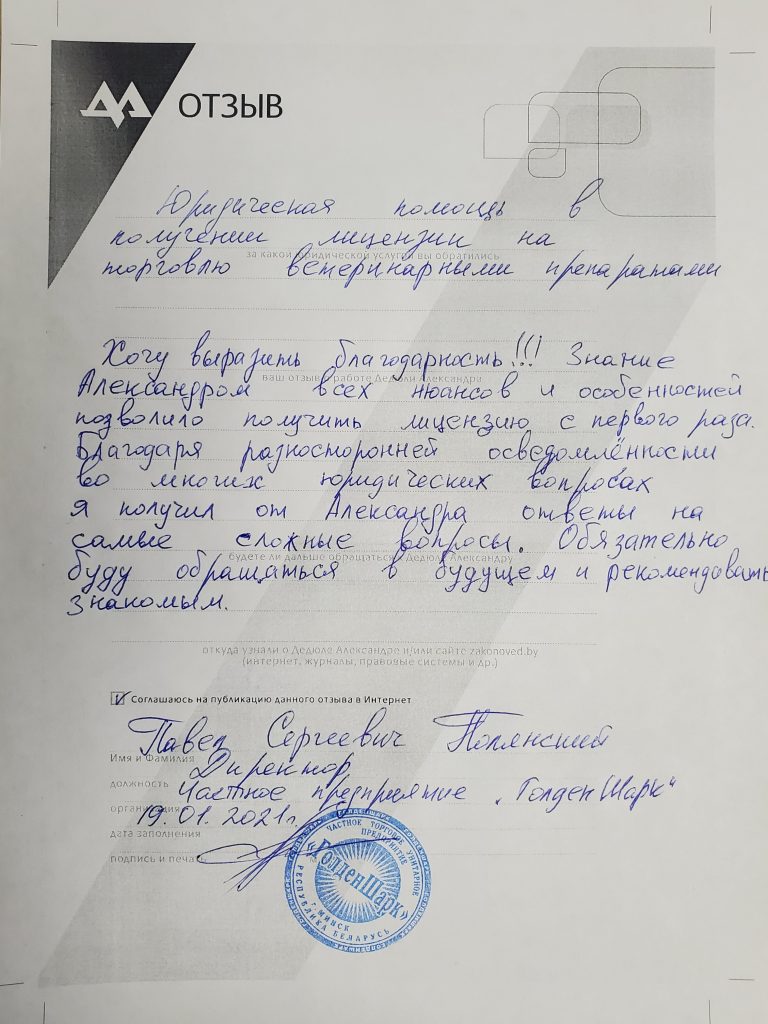 ДА ОТЗЫВ
Юридическая помощь в
получении лицензии на
за какой юридической услугой вы обратились
торговлю ветеринарными препаратами
Хочу выразить благодарность!!! Знание
ваш отзыв о работе Дедюли Александра
Александром всех нюансов и особенностей
позволило получить лицензию с первого раза.
Благодаря разносторонней осведомлённости
во многих юридических вопросах
я получил от Александра ответы на
самые сложные вопросы. Обязательно
будете ли дальше обращаться к Дедюле Александру
буду обращаться в будущем и рекомендовать
знакомым.
откуда узнали о Дедюле Александре и/или сайте zakonoved.by
(интернет, журналы, правовые системы и др.)
Соглашаюсь на публикацию данного отзыва в Интернет
Павел Сергеевич
Имя и Фамилия
Директор
должность
Частное предприятие „ГолденШарк“
организация
19.01.2021г.
дата заполнения
подпись и печать
ЧАСТНОЕ ТОРГОВОЕ УНИТАРНОЕ
ПРЕДПРИЯТИЕ
«ГолденШарк»
г. МИНСК
РЕСПУБЛИКА БЕЛАРУСЬ